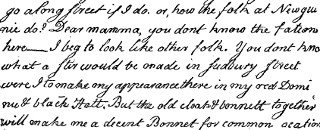 go along street if I do. or, how the folk at Newgui-
nie do? Dear mamma, you dont know the fation
here — I beg to look like other folk. You dont kno
what a stir would be made in sudbury street
were I to make my appearance there in my red Domi
nie & black Hatt. But the old cloak & bonnett together
will make me a decent Bonnet for common ocation